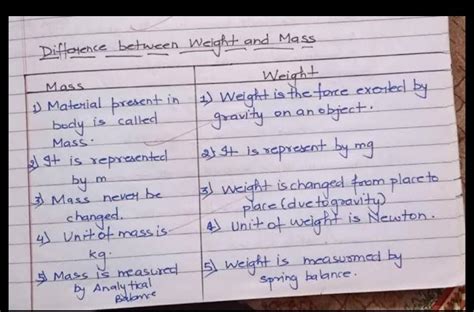 Difference between Weight and Mass
Mass
1) Material present in
body is called
Mass.
2) It is represented
by m
3) Mass never be
changed.
4) Unit of mass is
kg.
5) Mass is measured
by Analytical
Balance
Weight
1) Weight is the force exerted by
gravity on an object.
2) It is represent by mg
3) Weight is changed from place to
place (due to gravity)
4) Unit of weight is Newton.
5) Weight is measuromed by
spring balance.